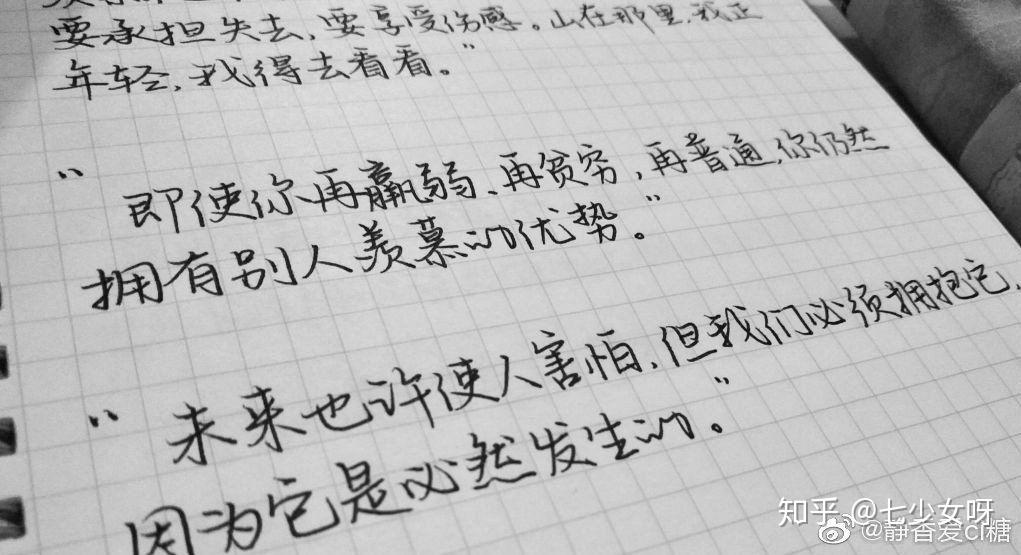 要承担失去,要享受伤感。山在那里,我正
年轻,我得去看看。”
“即使你再羸弱、再贫穷,再普通,你仍然
拥有别人羡慕的优势。”
“未来也许使人害怕,但我们必须拥抱它,
因为它是必然发生的。”
知乎 @七少女呀
@静香爱cl糖